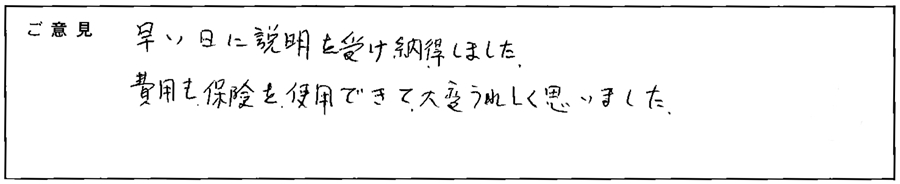 ご意見
早い日に説明を受け納得しました。
費用も保険を使用できて、大変うれしく思いました。